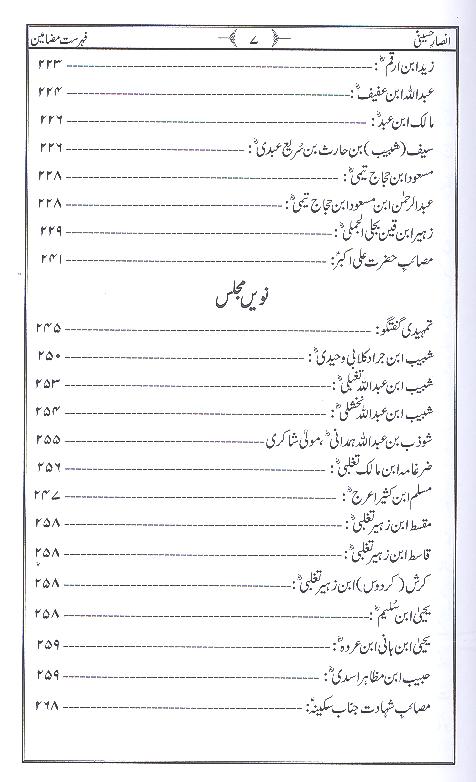 انصارِ حسینیؑ ۷ فہرست مضامین
زید ابن ارقمؓ: ۲۲۳
عبداللہ ابن عفیفؓ: ۲۲۴
مالک ابن عبدؓ: ۲۲۶
سیف (شبیب) بن حارث بن سُریع عبدیؓ: ۲۲۶
مسعود ابن حجاج تیمیؓ: ۲۲۸
عبدالرحمٰن ابن مسعود ابن حجاج تیمیؓ: ۲۲۸
زہیر ابن قین بجلی الجملیؓ: ۲۲۹
مصائبِ حضرت علی اکبرؑ: ۲۴۱
نویں مجلس
تمہیدی گفتگو: ۲۴۵
شبیب ابن جراد کلابی وحیدیؓ: ۲۵۰
شبیب ابن عبداللہ تغلبیؓ: ۲۵۳
شبیب ابن عبداللہ نخشلیؓ: ۲۵۴
شوذب بن عبداللہ ہمدانیؓ، مولیٰ شاکری ۲۵۵
ضرغامہ ابن مالک تغلبیؓ: ۲۵۶
مسلم ابن کثیر اعرجؓ: ۲۴۷
مقسط ابن زہیر تغلبیؓ: ۲۵۸
قاسط ابن زہیر تغلبیؓ: ۲۵۸
کرش (کردوس) ابن زہیر تغلبیؓ: ۲۵۸
یحییٰ ابن سُلیمؓ: ۲۵۸
یحییٰ ابن ہانی ابن عروہؓ: ۲۵۹
حبیب ابن مظاہر اسدیؓ: ۲۵۹
مصائبِ شہادت جناب سکینہؑ: ۲۶۸